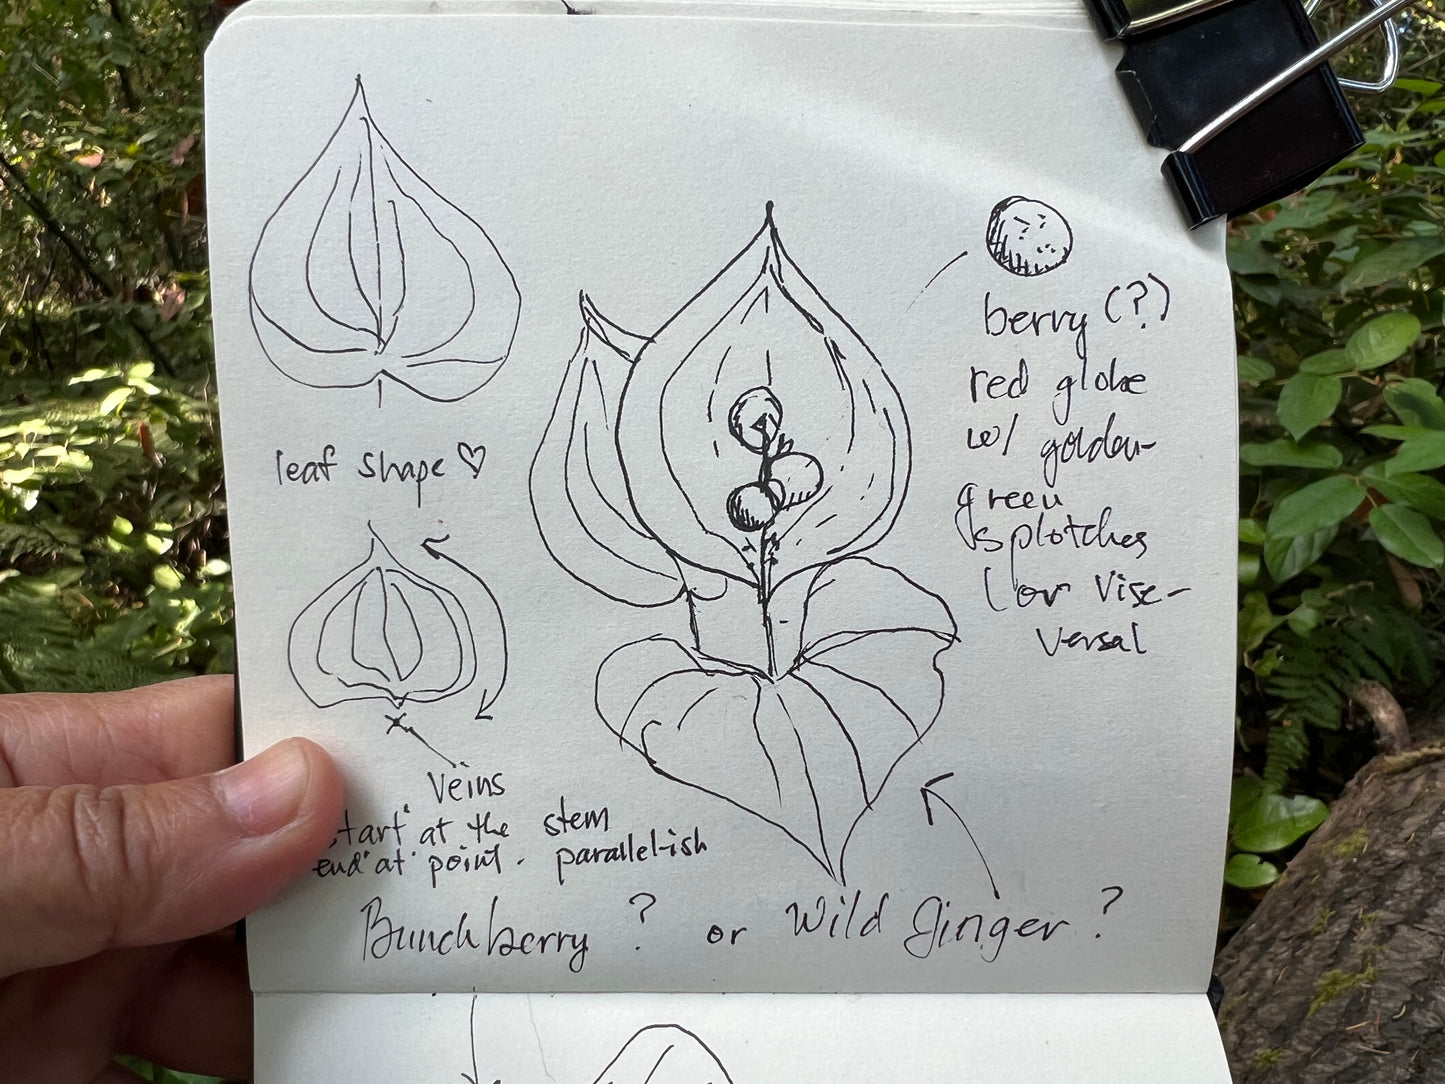 leaf shape ♡
Veins
start at the stem
end at point. parallel-ish
berry (?)
red globe
w/ golden-
green
splotches
(or vise-
versa)
Bunchberry ? or Wild Ginger ?